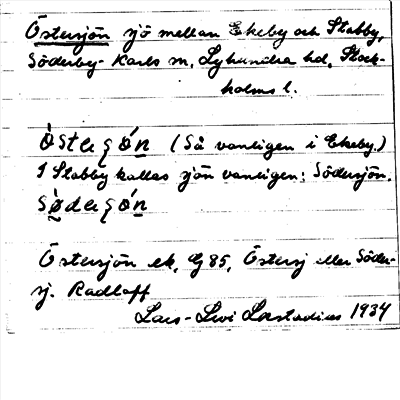 Östersjön sjö mellan Ekeby och Stabby,
Söderby-Karls sn, Lyhundra hd, Stock-
holms l.
òsteʃǿn (Så vanligen i Ekeby.)
I Stabby kallas sjön vanligen: Södersjön.
sø̀deʃǿn
Östersjön ek. Gj 85, Östersj eller Söder-
sj. Radloff
Lars-Levi Læstadius 1934